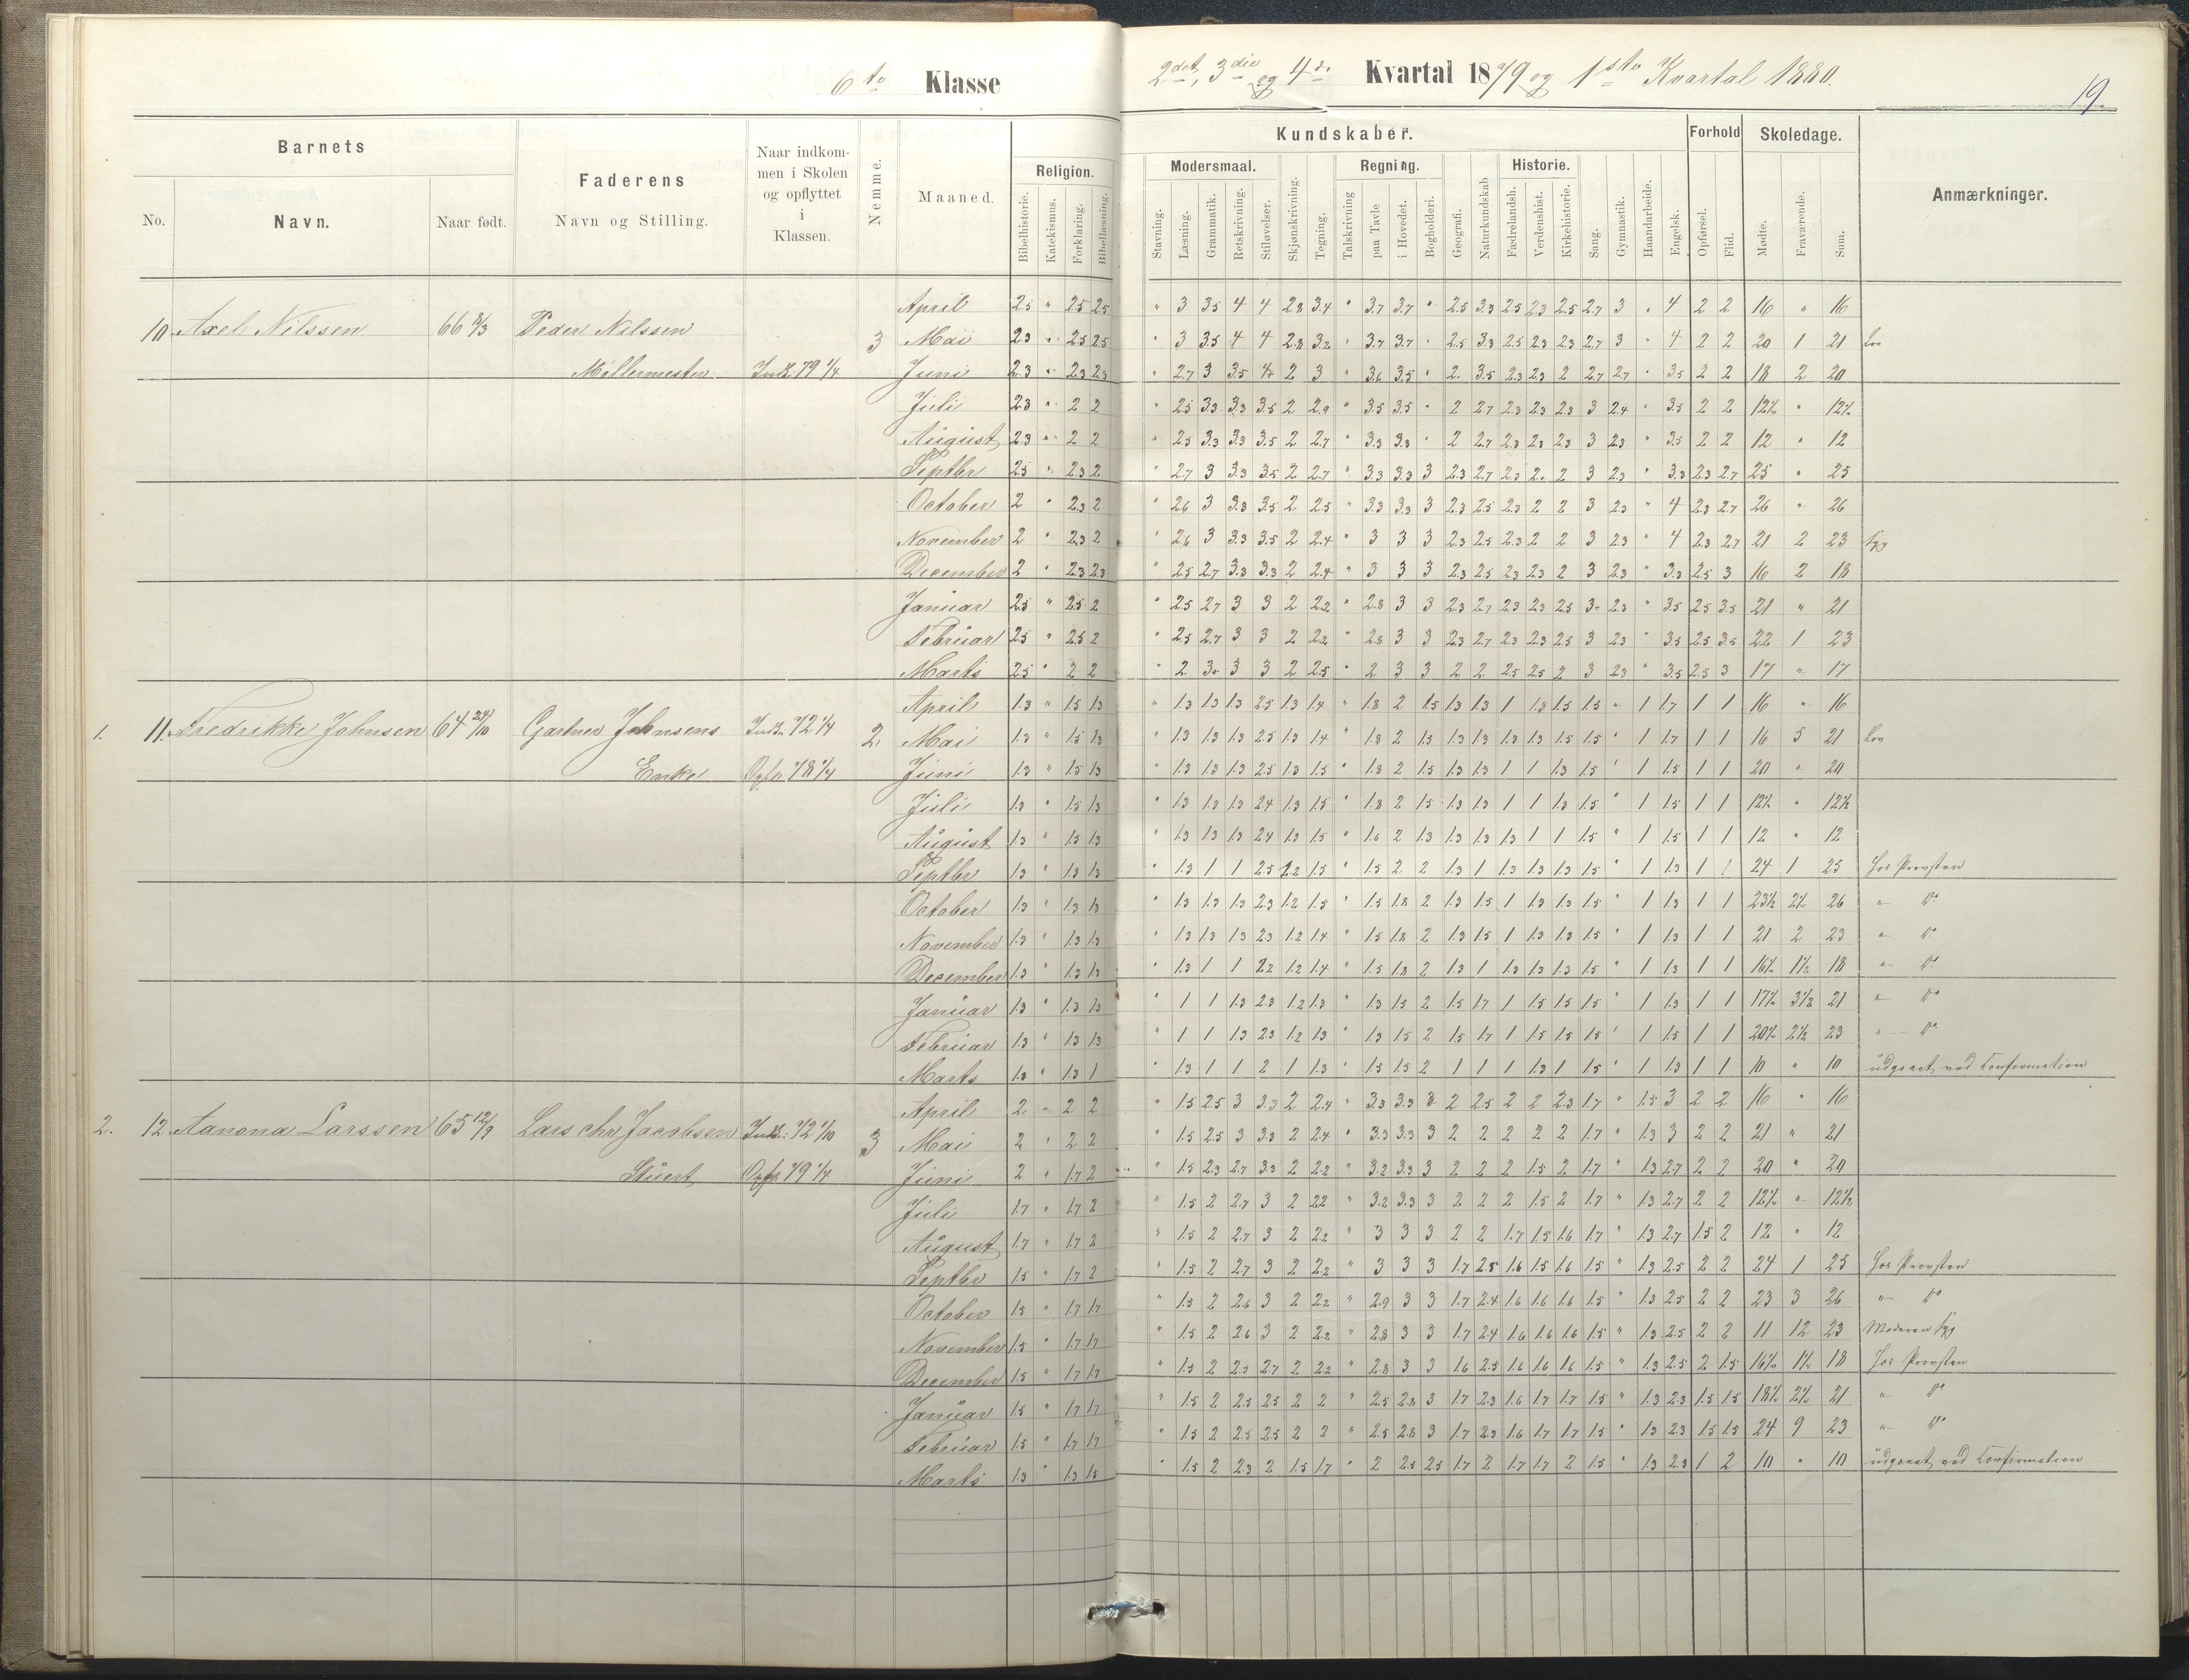 6te Klasse
2det, 3die og 4de Kvartal 1879 og 1ste Kvartal 1880.
19.
Barnets
No. Navn. Naar født.
Faderens
Navn og Stilling.
Naar indkom-
men i Skolen
og opflyttet
i
Klassen.
Nemme.
Maaned.
Kundskaber.
Religion.
Bibelhistorie. Katekismus. Forklaring. Bibellæsning.
Modersmaal.
Stavning. Læsning. Grammatik. Retskrivning. Stiløvelser. Skjønskrivning. Tegning.
Regning.
Talskrivning paa Tavle i Hovedet. Bogholderi.
Geografi. Naturkundskab
Historie.
Fædrelandsh. Verdenshist. Kirkehistorie.
Sang. Gymnastik. Haandarbeide. Engelsk.
Forhold
Opførsel. Flid.
Skoledage.
Mødte. Fraværende. Sum.
Anmærkninger.
10 Axel Nilssen 66 8/3 Peder Nilssen 3
Møllermester Indk. 79 1/4
April 2.5 " 2.5 2.5 " 3 3.5 4 4 2.8 3.4 " 3.7 3.7 " 2.5 3.3 2.5 2.3 2.5 2.7 3 " 4 2 2 16 " 16
Mai 2.3 " 2.5 2.5 " 3 3.5 4 4 2.8 3.2 " 3.7 3.7 " 2.5 3.3 2.5 2.3 2.3 2.7 3 " 4 2 2 20 1 21 Lov
Juni 2.3 " 2.3 2.3 " 2.7 3 3.5 4 2 3 " 3.6 3.5 " 2. 3.5 2.3 2.3 2 2.7 2.7 " 3.5 2 2 18 2 20
Juli 2.3 " 2 2 " 2.5 3.3 3.3 3.5 2 2.9 " 3.5 3.5 " 2 2.7 2.3 2.3 2.3 3 2.4 " 3.5 2 2 12½ " 12½
August 2.3 " 2 2 " 2.5 3.3 3.3 3.5 2 2.7 " 3.3 3.3 " 2 2.7 2.3 2.3 2.3 3 2.3 " 3.5 2 2 12 " 12
Septbr 2.5 " 2.3 2 " 2.7 3 3.3 3.5 2 2.7 " 3.3 3.3 3 2.3 2.7 2.3 2. 2 3 2.3 " 3.3 2.3 2.7 25 " 25
October 2 " 2.3 2 " 2.6 3 3.3 3.5 2 2.5 " 3.3 3.3 3 2.3 2.5 2.3 2 2 3 2.3 " 4 2.3 2.7 26 " 26
November 2 " 2.3 2 " 2.6 3 3.3 3.5 2 2.4 " 3 3 3 2.3 2.5 2.3 2 2 3 2.3 " 4 2.3 2.7 21 2 23 syg
December 2 " 2.3 2.3 " 2.5 2.7 3.3 3.3 2 2.4 " 3 3 3 2.3 2.5 2.3 2.3 2 3 2.3 " 3.3 2.5 3 16 2 18
Januar 2.5 " 2.5 2 " 2.5 2.7 3 3 2 2.2 " 2.8 3 3 2.3 2.7 2.3 2.3 2.5 3. 2.3 " 3.5 2.5 3.5 21 " 21
Februar 2.5 " 2.5 2 " 2.5 2.7 3 3 2 2.2 " 2.8 3 3 2.3 2.7 2.3 2.3 2.5 3 2.3 " 3.5 2.5 3.5 22 1 23
Marts 2.5 " 2 2 " 2 3. 3 3 2 2.5 " 2 3 3 2 2 2.5 2.5 2 3 2.3 " 3.5 2.5 3 17 " 17
1. 11. Fredrikke Johnsen 64 24/10 Gartner Johnsens Indk. 72 1/4 2
Enke Opfl. 78 1/4
April 1.3 " 1.5 1.3 " 1.3 1.3 1.3 2.5 1.3 1.4 " 1.8 2 1.5 1.3 1.3 1 1.3 1.5 1.5 " 1 1.7 1 1 16 " 16
Mai 1.3 " 1.5 1.3 " 1.3 1.3 1.3 2.5 1.3 1.4 " 1.8 2 1.5 1.3 1.3 1.3 1.3 1.5 1.5 " 1 1.7 1 1 16 5 21 Lov
Juni 1.3 " 1.5 1.3 " 1.3 1.3 1.3 2.5 1.3 1.5 " 1.8 2 1.5 1.3 1.3 1 1 1.3 1.5 " 1 1.5 1 1 20 " 20
Juli 1.3 " 1.5 1.3 " 1.3 1.3 1.3 2.4 1.3 1.5 " 1.8 2 1.5 1.3 1.3 1 1 1.3 1.5 " 1 1.5 1 1 12½ " 12½
August 1.3 " 1.5 1.3 " 1.3 1.3 1.3 2.4 1.3 1.5 " 1.6 2 1.3 1.3 1.3 1.3 1 1 1.5 " 1 1.5 1 1 12 " 12
Septbr 1.3 " 1.3 1.3 " 1.3 1 1 2.5 1.2 1.5 " 1.5 2 2 1.3 1 1.3 1.3 1.3 1.5 " 1 1.3 1 1 24 1 25 Hos Provsten
October 1.3 " 1.3 1.3 " 1.3 1.3 1.3 2.3 1.2 1.5 " 1.5 1.8 2 1.3 1.5 1 1.3 1.3 1.5 " 1 1.3 1 1 23½ 2½ 26 " Do
November 1.3 " 1.3 1.3 " 1.3 1.3 1.3 2.3 1.2 1.4 " 1.5 1.8 2 1.3 1.5 1 1.3 1.3 1.5 " 1 1.3 1 1 21 2 23 " Do
December 1.3 " 1.3 1.3 " 1.3 1 1 2.2 1.2 1.4 " 1.5 1.8 2 1.3 1 1.3 1.3 1.3 1.5 " 1 1.3 1 1 16½ 1½ 18 " Do
Januar 1.3 " 1.3 1.3 " 1 1 1.3 2.3 1.2 1.3 " 1.3 1.5 2 1.5 1.7 1 1.5 1.5 1.5 " 1 1.3 1 1 17½ 3½ 21 " Do
Februar 1.3 " 1.3 1.3 " 1 1 1.3 2.3 1.2 1.3 " 1.3 1.5 2 1.5 1.7 1 1.5 1.5 1.5 " 1 1.5 1 1 20½ 2½ 23 " Do
Marts 1.3 " 1.3 1 " 1.3 1 1 2 1 1.3 " 1.5 1.5 2 1 1 1 1.3 1 1.5 " 1 1.3 1 1 10 " 10 udgaaet ved Confirmation
2. 12. Aanona Larssen 65 12/9 Lars Chr Jacobsen Indk. 72 1/10 3
Stuert Opfl. 79 1/4
April 2 " 2 2 " 1.5 2.5 3 3.3 2 2.4 " 3.3 3.3 3 2 2.5 2 2 2.3 1.7 " 1.5 3 2 2 16 " 16
Mai 2 " 2 2 " 1.5 2.5 3 3.3 2 2.4 " 3.3 3.3 3 2 2 2 2 2 1.7 " 1.3 3 2 2 21 " 21
Juni 2 " 1.7 2 " 1.5 2.3 2.7 3.3 2 2.2 " 3.2 3.3 3 2 2 2 1.5 2 1.7 " 1.3 2.7 2 2 20 " 20
Juli 1.7 " 1.7 2 " 1.5 2 2.7 3 2 2.2 " 3.2 3.3 3 2 2 2 1.5 2 1.7 " 1.3 2.7 2 2 12½ " 12½
August 1.7 " 1.7 2 " 1.5 2 2.7 3 2 2.2 " 3 3 3 2 2 1.7 1.5 1.6 1.7 " 1.3 2.7 1.5 2 12 " 12
Septbr 1.5 " 1.7 2 " 1.5 2 2.7 3 2 2.2 " 3 3 3 1.7 2.5 1.6 1.5 1.6 1.5 " 1.3 2.5 2 2 24 1 25 Hos Provsten
October 1.5 " 1.7 1.7 " 1.5 2 2.6 3 2 2.2 " 2.9 3 3 1.7 2.4 1.6 1.6 1.6 1.5 " 1.3 2.5 2 2 23 3 26 " Do
November 1.5 " 1.7 1.7 " 1.5 2 2.6 3 2 2.2 " 2.8 3 3 1.7 2.4 1.6 1.6 1.6 1.5 " 1.3 2.5 2 2 11 12 23 Moderen syg
December 1.5 " 1.7 1.7 " 1.5 2 2.5 2.7 2 2.2 " 2.8 3 3 1.6 2.5 1.6 1.6 1.6 1.5 " 1.3 2.5 2 1.5 16½ 1½ 18 Hos Provsten
Januar 1.5 " 1.7 1.7 " 1.5 2 2.5 2.5 2 2 " 2.5 2.8 3 1.7 2.3 1.6 1.7 1.7 1.5 " 1.3 2.3 1.5 1.5 18½ 2½ 21 " Do
Februar 1.5 " 1.7 1.7 " 1.5 2 2.5 2.5 2 2 " 2.5 2.8 3 1.7 2.3 1.6 1.7 1.7 1.5 " 1.3 2.3 1.5 1.5 24 9 23 " Do
Marts 1.3 " 1.3 1.5 " 1.5 2 2.3 2 1.5 1.7 " 2 2.5 2.5 1.7 2 1.7 1.7 2 1.5 " 1.3 2.3 1 2 10 " 10 udgaaet ved Confirmation